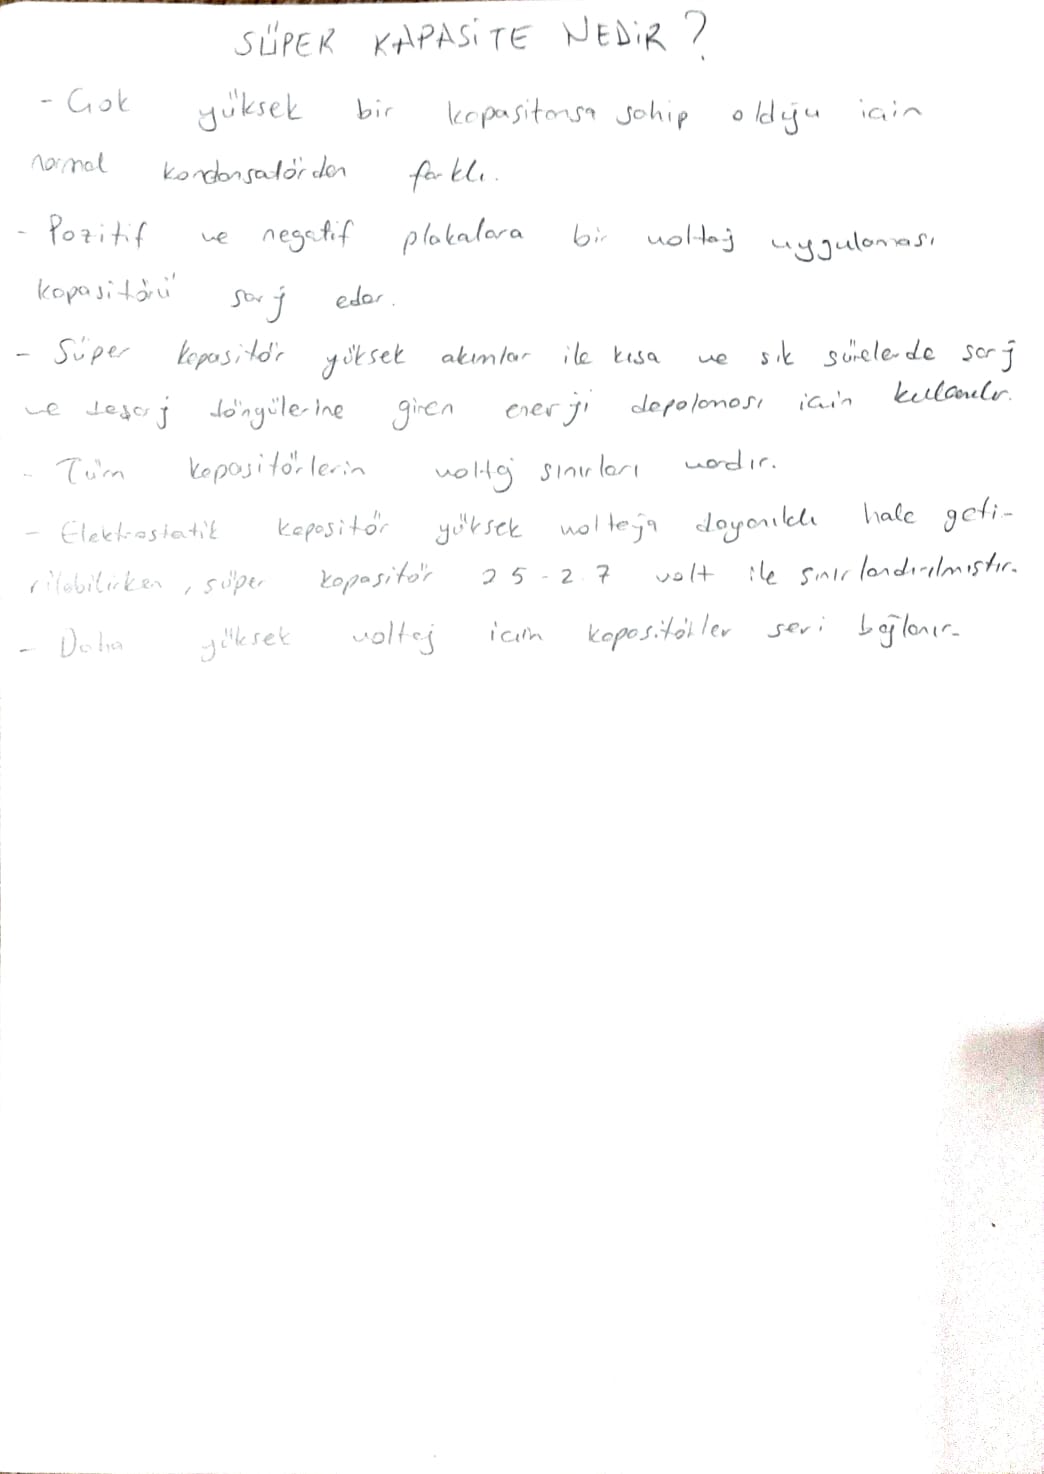 SÜPER KAPASİTE NEDİR?
- Çok yüksek bir kapasitansa sahip olduğu için
normal kondansatörden farklı.
- Pozitif ve negatif plakalara bir voltaj uygulaması
kapasitörü sarj eder.
- Süper kapasitör yüksek akımlar ile kısa ve sık sürelerde sarj
ve deşarj döngülerine giren enerji depolanası için kullanılır.
- Tüm kapasitörlerin voltaj sınırları vardır.
- Elektrostatik kapasitör yüksek volteja dayanıklı hale geti-
rilebilirken, süper kapasitör 25-2.7 volt ile sınırlandırılmıştır.
- Daha yüksek voltaj için kapasitörler seri bağlanır.